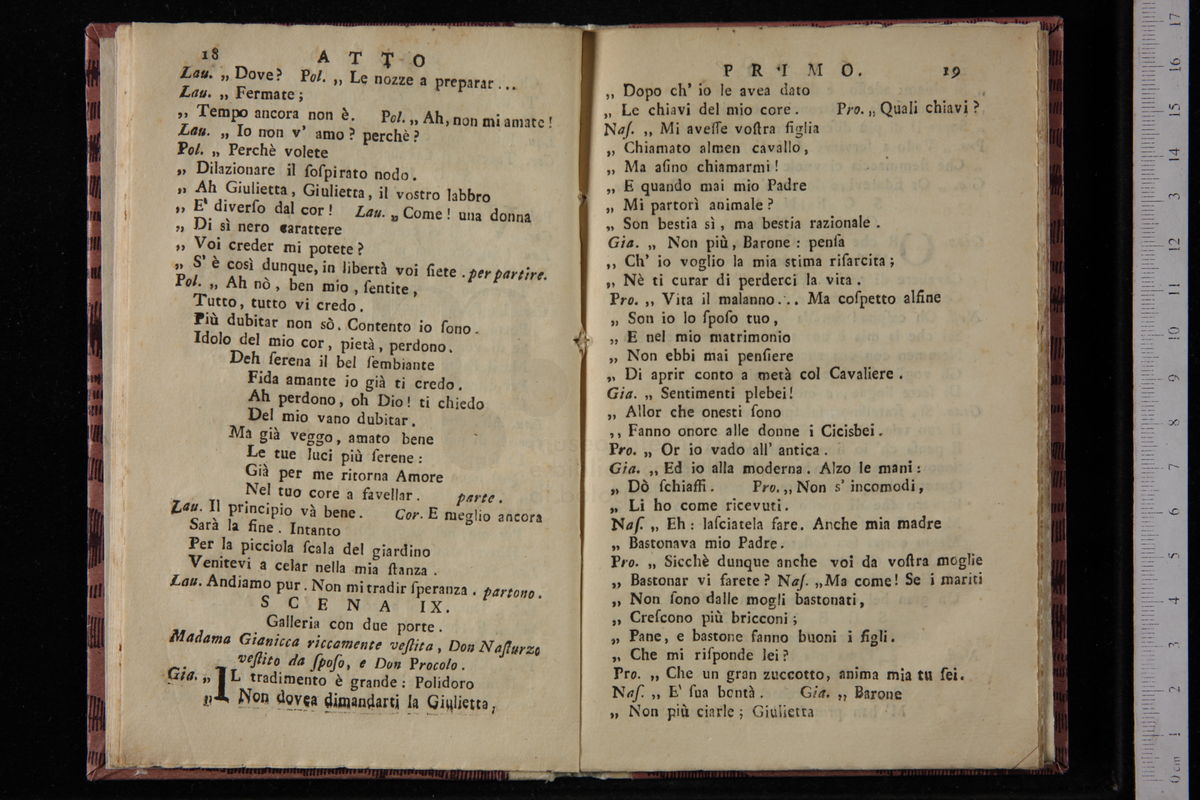 18 ATTO
Lau. „ Dove? Pol. „ Le nozze a preparar...
Lau. „ Fermate;
„ Tempo ancora non è. Pol. „ Ah, non mi amate!
Lau. „ Io non v' amo? perchè?
Pol. „ Perchè volete
„ Dilazionare il ſoſpirato nodo.
„ Ah Giulietta, Giulietta, il vostro labbro
„ E' diverſo dal cor! Lau. „ Come! una donna
„ Di sì nero carattere
„ Voi creder mi potete?
„ S' è così dunque, in libertà voi ſiete. per partire.
Pol. „ Ah nò, ben mio, ſentite,
Tutto, tutto vi credo.
Più dubitar non sò. Contento io ſono.
Idolo del mio cor, pietà, perdono.
Deh ſerena il bel ſembiante
Fida amante io già ti credo.
Ah perdono, oh Dio! ti chiedo
Del mio vano dubitar.
Ma già veggo, amato bene
Le tue luci più ſerene:
Già per me ritorna Amore
Nel tuo core a favellar. parte.
Lau. Il principio và bene. Cor. E meglio ancora
Sarà la fine. Intanto
Per la picciola ſcala del giardino
Venitevi a celar nella mia ſtanza.
Lau. Andiamo pur. Non mi tradir ſperanza. partono.
SCENA IX.
Galleria con due porte.
Madama Gianicca riccamente veſtita, Don Naſturzo
veſtito da ſpoſo, e Don Procolo.
Gia. „ IL tradimento è grande: Polidoro
„ Non dovea dimandarti la Giulietta,
PRIMO. 19
„ Dopo ch' io le avea dato
„ Le chiavi del mio core. Pro. „ Quali chiavi?
Naſ. „ Mi aveſſe voſtra figlia
„ Chiamato almen cavallo,
„ Ma aſino chiamarmi!
„ E quando mai mio Padre
„ Mi partorì animale?
„ Son bestia sì, ma bestia razionale.
Gia. „ Non più, Barone: penſa
„ Ch' io voglio la mia stima riſarcita;
„ Nè ti curar di perderci la vita.
Pro. „ Vita il malanno... Ma coſpetto alfine
„ Son io lo ſpoſo tuo,
„ E nel mio matrimonio
„ Non ebbi mai penſiere
„ Di aprir conto a metà col Cavaliere.
Gia. „ Sentimenti plebei!
„ Allor che onesti ſono
„ Fanno onore alle donne i Cicisbei.
Pro. „ Or io vado all' antica.
Gia. „ Ed io alla moderna. Alzo le mani:
„ Dò ſchiaffi. Pro. „ Non s' incomodi,
„ Li ho come ricevuti.
Naſ. „ Eh: laſciatela fare. Anche mia madre
„ Bastonava mio Padre.
Pro. „ Sicchè dunque anche voi da voſtra moglie
„ Bastonar vi farete? Naſ. „ Ma come! Se i mariti
„ Non ſono dalle mogli bastonati,
„ Creſcono più bricconi;
„ Pane, e bastone fanno buoni i figli.
„ Che mi riſponde lei?
Pro. „ Che un gran zuccotto, anima mia tu ſei.
Naſ. „ E' ſua bontà. Gia. „ Barone
„ Non più ciarle; Giulietta
0 cm 1 2 3 4 5 6 7 8 9 10 11 12 13 14 15 16 17